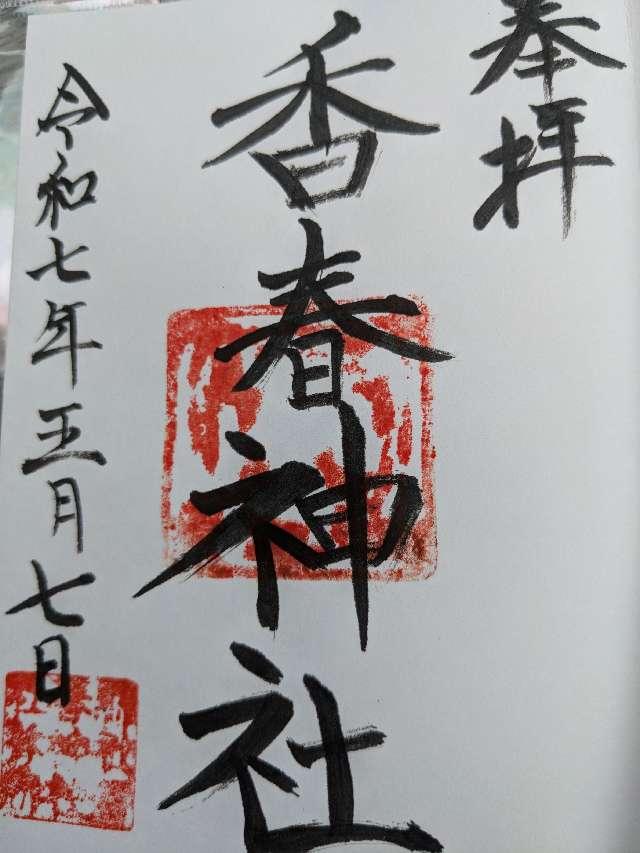 奉拝
香春神社
令和七年五月七日